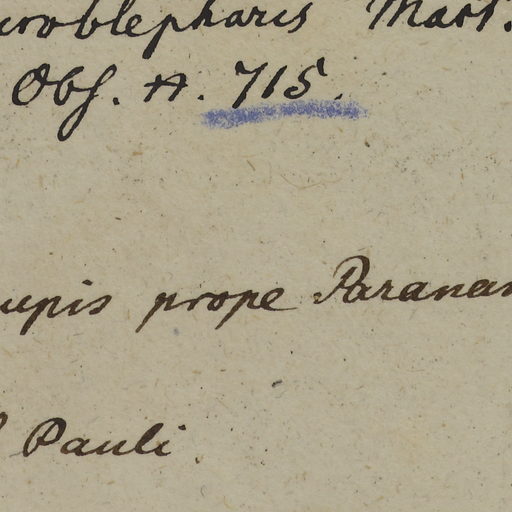 croblepharis Mart.
Obs. A. 715.
upis prope Paranan
Pauli